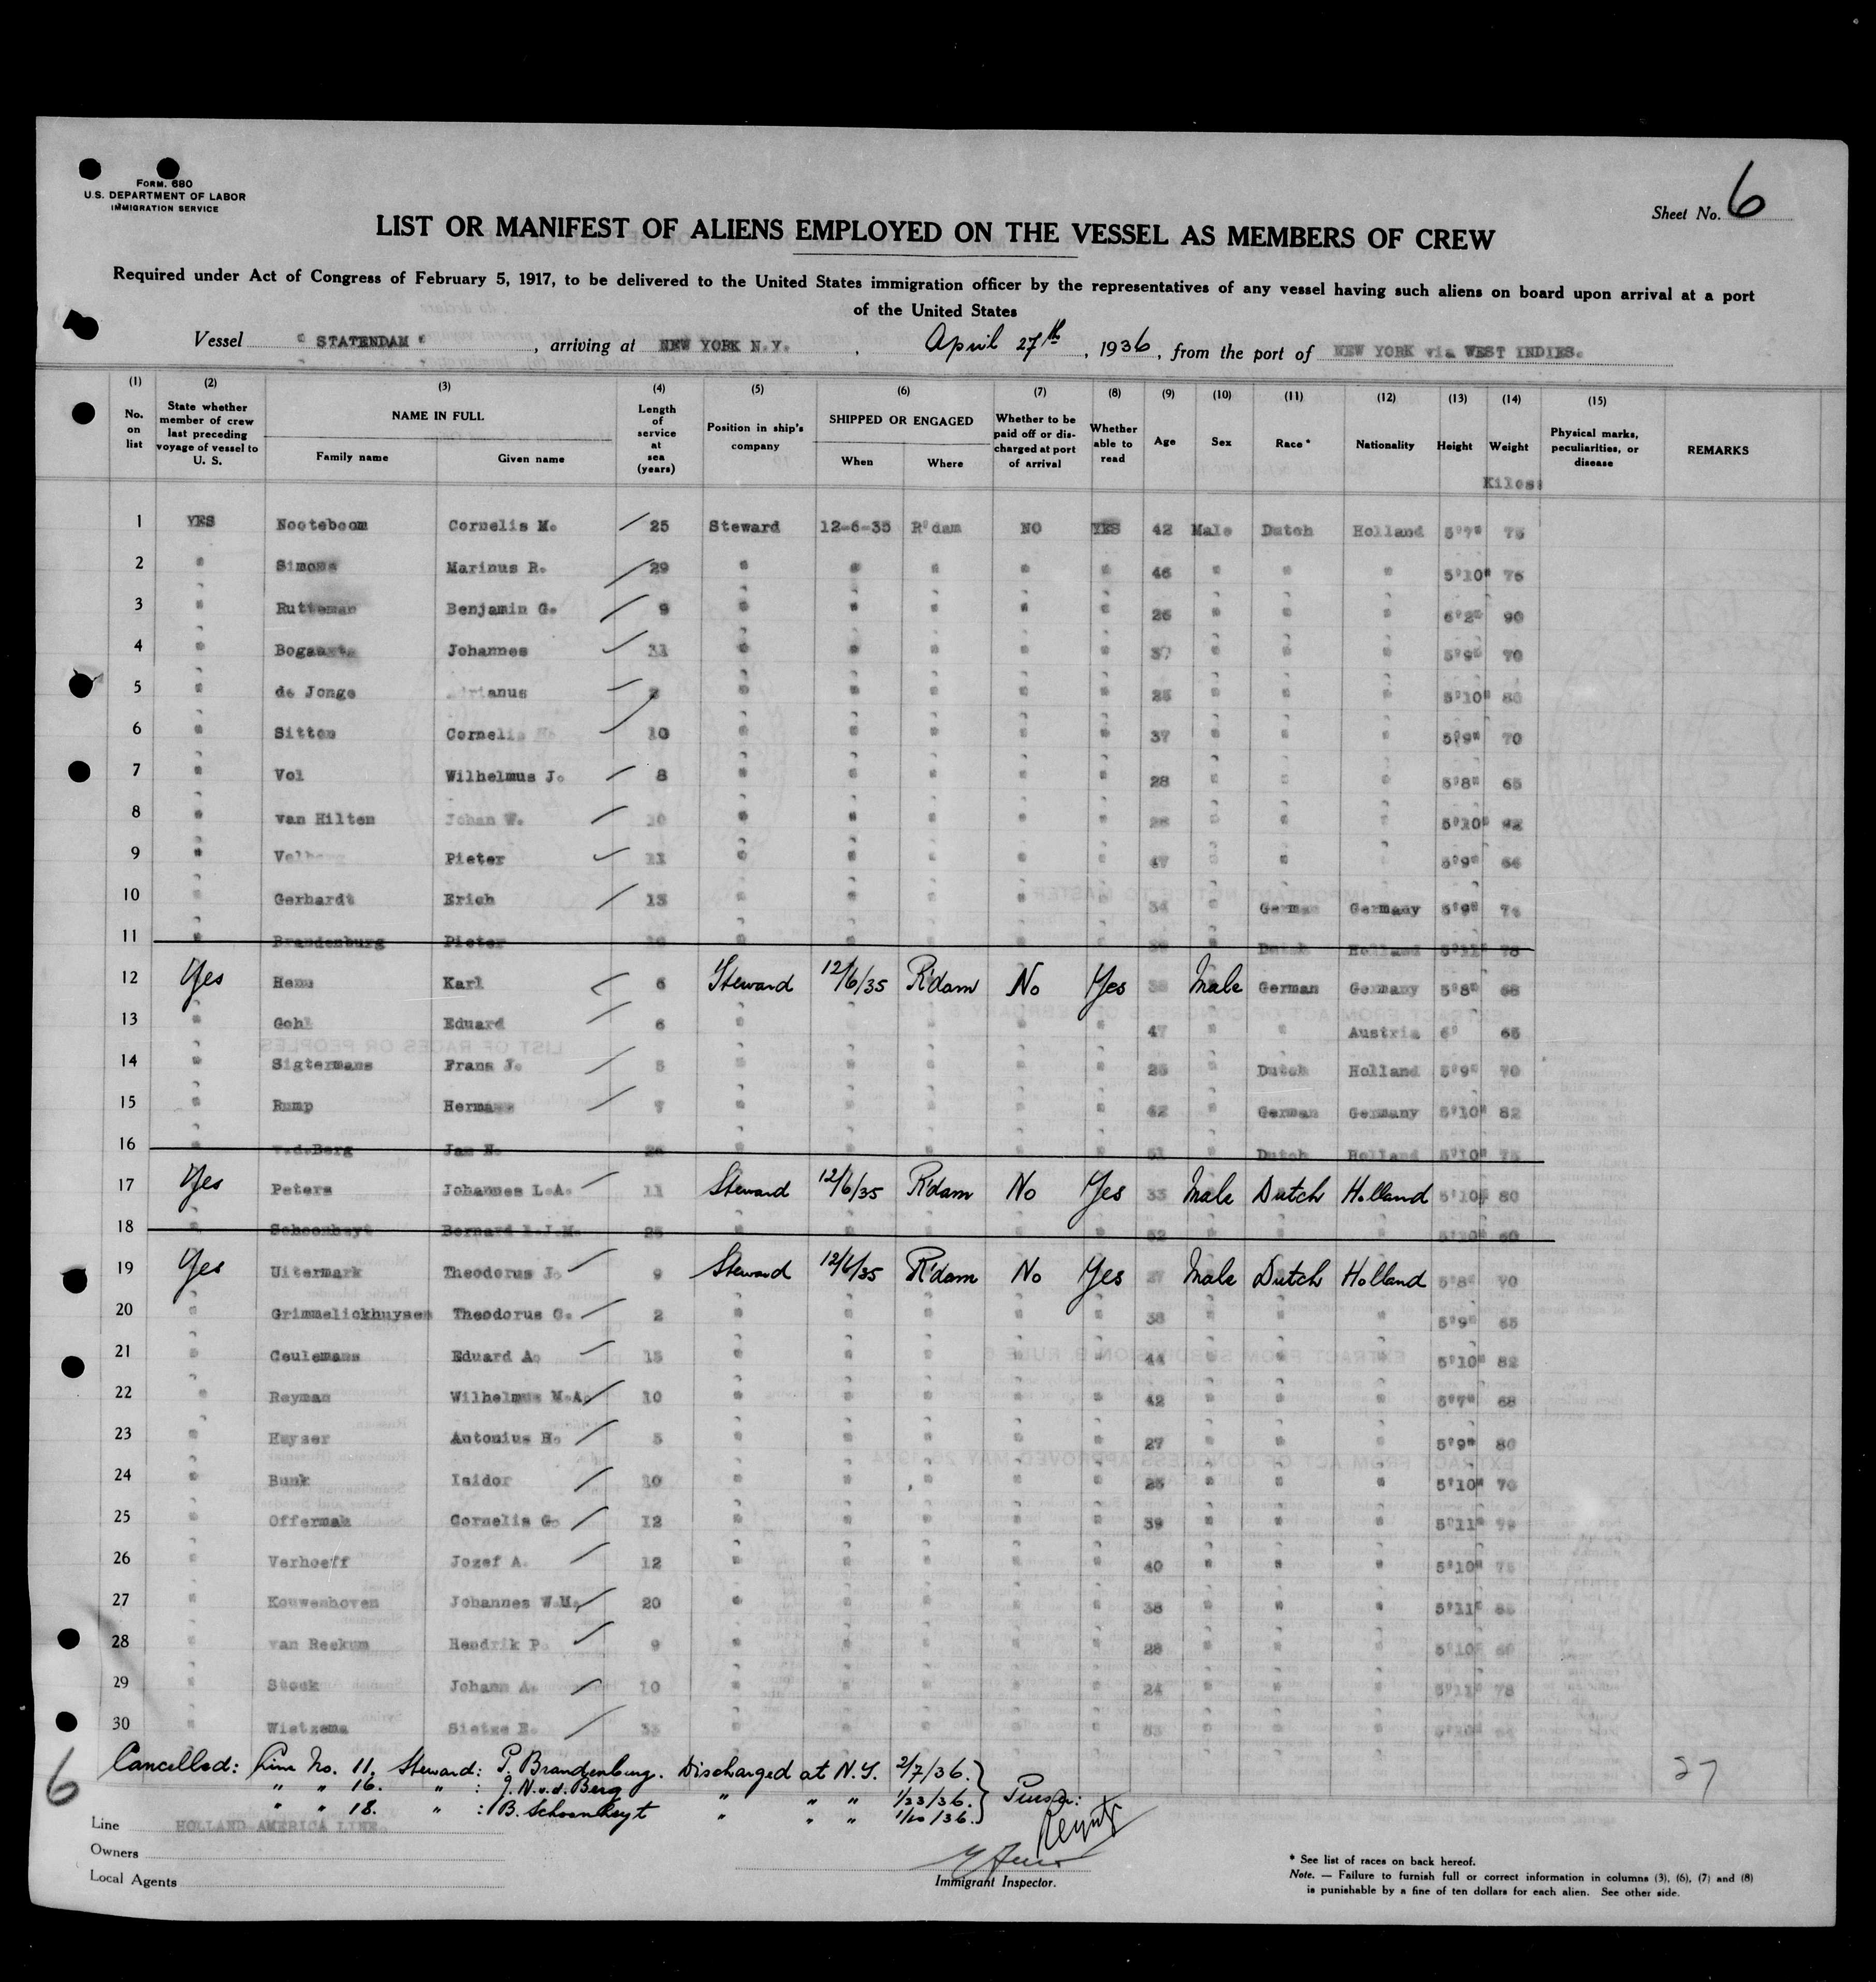 FORM. 680
U.S. DEPARTMENT OF LABOR
IMMIGRATION SERVICE
Sheet No. 6
LIST OR MANIFEST OF ALIENS EMPLOYED ON THE VESSEL AS MEMBERS OF CREW
Required under Act of Congress of February 5, 1917, to be delivered to the United States immigration officer by the representatives of any vessel having such aliens on board upon arrival at a port
of the United States
Vessel " STATENDAM " , arriving at NEW YORK N.Y. , April 27th , 1936 , from the port of NEW YORK via WEST INDIES.
(1) (2) (3) (4) (5) (6) (7) (8) (9) (10) (11) (12) (13) (14) (15)
No. on list
State whether member of crew last preceding voyage of vessel to U. S.
NAME IN FULL
Family name Given name
Length of service at sea (years)
Position in ship's company
SHIPPED OR ENGAGED
When Where
Whether to be paid off or discharged at port of arrival
Whether able to read
Age Sex Race * Nationality Height Weight
Kilos:
Physical marks, peculiarities, or disease
REMARKS
1 YES Nooteboom Cornelis M. 25 Steward 12-6-35 R'dam NO YES 42 Male Dutch Holland 5'7" 75
2 " Simons Marinus R. 29 " " " " " 46 " " " 5'10" 75
3 " Rutteman Benjamin G. 9 " " " " " 26 " " " 6'2" 90
4 " Johannes " " " " " 37 " " " 5'9" 70
5 " de Jonge " " " " " 25 " " " 5'10"
6 " Sitton Cornelis 10 " " " " " 37 " " " 5'9" 70
7 " Vol Wilhelmus J. 8 " " " " " 28 " " " 5'8" 65
8 " van Hilten Johan W. " " " " " " " " 5'10"
9 " Pieter " " " " " 47 " " " 5'9"
10 " Gerhardt Erich 13 " " " " " 34 " German Germany 5'9"
11 " Brandenburg Pieter " " " " " " Dutch Holland 5'11"
12 Yes Karl 6 Steward 12/6/35 R'dam No Yes Male German Germany 5'8" 68
13 " Gohl Eduard 6 " " " " " 47 " " Austria 6' 65
14 " Sigtermans Frans J. 5 " " " " " " Dutch Holland 5'9" 70
15 " Rump Hermann 7 " " " " " 42 " German Germany 5'10" 82
16 " v.d.Berg Jan N. " " " " " 51 " Dutch Holland 5'10" 75
17 Yes Peters Johannes L.A. 11 Steward 12/6/35 R'dam No Yes 33 Male Dutch Holland 5'10" 80
18 " Schoonheyt Bernard 25 " " " " " 52 " " " 5'10" 60
19 Yes Uitermark Theodorus J. 9 Steward 12/6/35 R'dam No Yes 27 Male Dutch Holland 5'8" 70
20 " Grimmelickhuysen Theodorus G. 2 " " " " " 38 " " " 5'9" 65
21 " Ceulemans Eduard A. 15 " " " " " 44 " " " 5'10" 82
22 " Reyman Wilhelmus M.A. 10 " " " " " 42 " " " 5'7" 68
23 " Huyser Antonius H. 5 " " " " " 27 " " " 5'9" 80
24 " Bunk Isidor 10 " " " " " 25 " " " 5'10" 70
25 " Offerman Cornelis G. 12 " " " " " 39 " " " 5'11"
26 " Verhoeff Jozef A. 12 " " " " " 40 " " " 5'10" 75
27 " Kouwenhoven Johannes W.M. 20 " " " " " 38 " " " 5'11" 85
28 " van Reekum Hendrik P. 9 " " " " " 28 " " " 5'10"
29 " Stook Johann A. 10 " " " " " 24 " " " 5'11" 78
30 " Wietzema Sietze E. " " " " " 53 " " " 5'10"
Cancelled: Line No. 11. Steward: P. Brandenburg. Discharged at N.Y. 2/7/36.
" " 16. " : J. N. v. d. Berg " " " 1/23/36. Purser:
" " 18. " : B. Schoonheyt " " " 1/20/36.
6
27
Line HOLLAND AMERICA LINE.
Owners
Local Agents
Immigrant Inspector.
* See list of races on back hereof.
Note. — Failure to furnish full or correct information in columns (3), (6), (7) and (8)
is punishable by a fine of ten dollars for each alien. See other side.